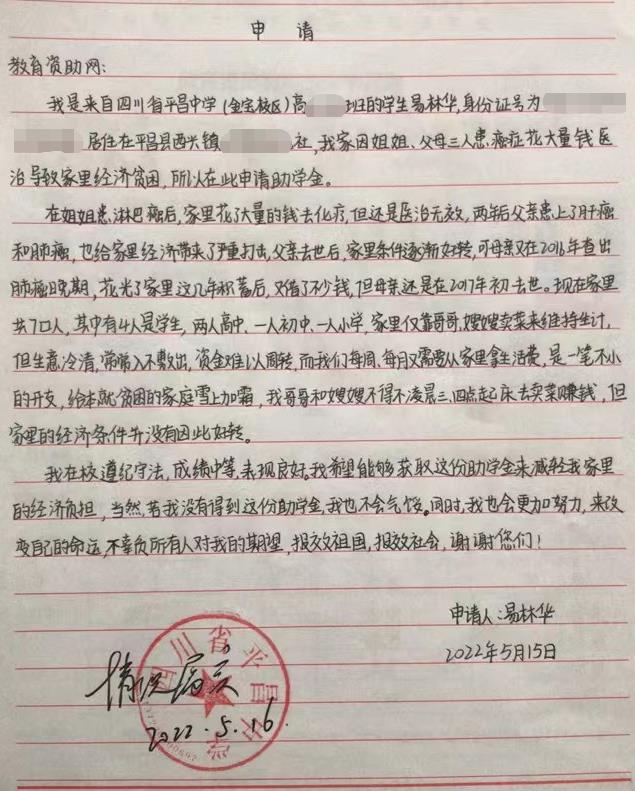 申请
教育资助网:
我是来自四川省平昌中学(金宝校区)高 班的学生易林华,身份证号为
居住在平昌县西兴镇 社,我家因姐姐、父母三人患癌症花大量钱医
治导致家里经济贫困,所以在此申请助学金。
在姐姐患淋巴癌后,家里花了大量的钱去化疗,但还是医治无效,两年后父亲患上了肝癌
和肺癌,也给家里经济带来了严重打击,父亲去世后,家里条件逐渐好转,可母亲又在2016年查出
肺癌晚期,花光了家里这几年积蓄后,又借了不少钱,但母亲还是在2017年初去世。现在家里
共7口人,其中有4人是学生,两人高中、一人初中、一人小学,家里仅靠哥哥、嫂嫂卖菜来维持生计,
但生意冷清,常常入不敷出,资金难以周转,而我们每周、每月又需要从家里拿生活费,是一笔不小
的开支,给本就贫困的家庭雪上加霜,我哥哥和嫂嫂不得不凌晨三、四点起床去卖菜赚钱,但
家里的经济条件并没有因此好转。
我在校遵纪守法,成绩中等,表现良好。我希望能够获取这份助学金来减轻我家里
的经济负担,当然,若我没有得到这份助学金,我也不会气馁。同时,我也会更加努力,来改
变自己的命运,不辜负所有人对我的期望,报效祖国,报效社会,谢谢您们!
申请人:易林华
2022年5月15日
四川省平昌中学
情况属实
2022.5.16.